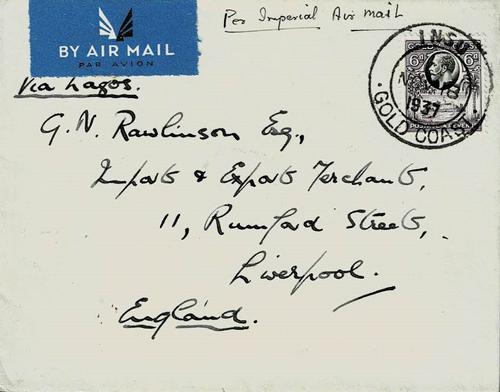 Per Imperial Air Mail
BY AIR MAIL
PAR AVION
Via Lagos.
INSU
6D 6D
1937
GOLD COAST
G. N. Rawlinson Esq.,
Imports & Exports Merchants,
11, Rumford Street,
Liverpool.
England.